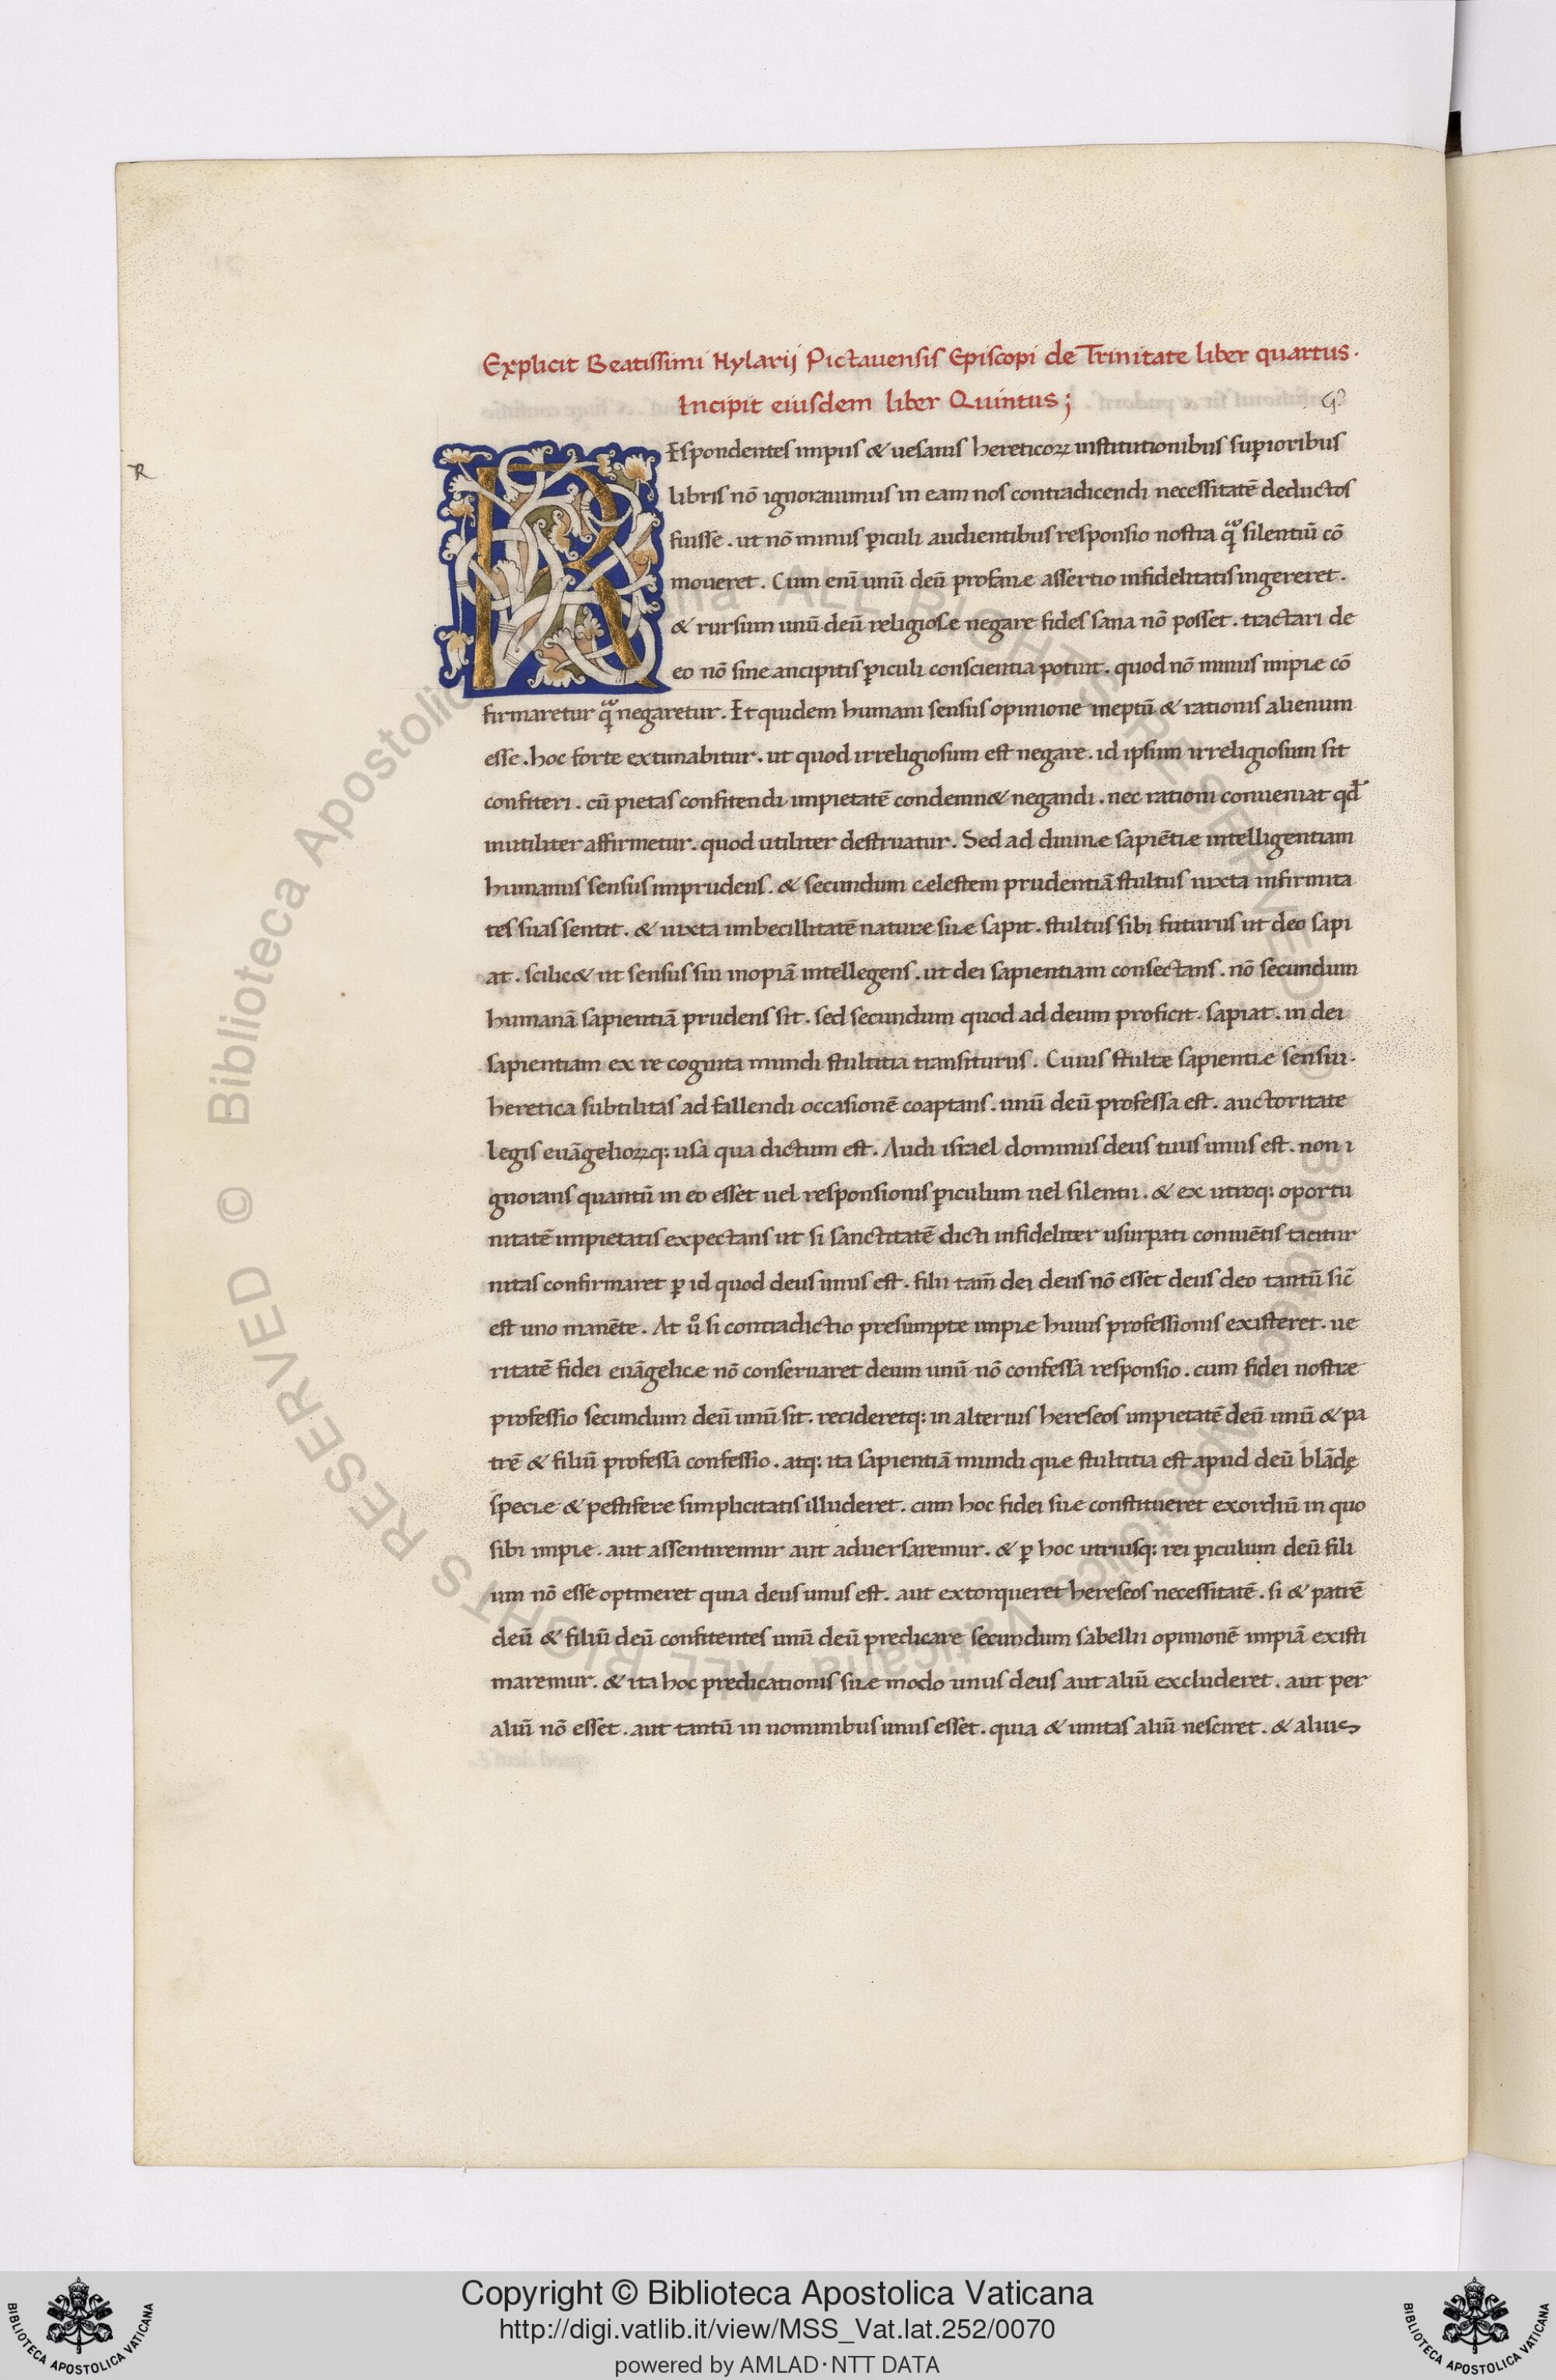 Explicit Beatissimi Hylarij Pictauensis Episcopi de Trinitate liber quartus.
Incipit eiusdem liber Quintus;
R
REspondentes impiis & uesanis hereticoꝝ institutionibus supioribus
libris nō ignorauimus in eam nos contradicendi necessitatē deductos
fuisse. ut nō minus ꝑiculi audientibus responsio nostra qͣ silentiū cō
moueret. Cum enī unū deū profane assertio infidelitatis ingereret.
& rursum unū deū religiose negare fides sana nō posset. tractari de
eo nō sine ancipitis ꝑiculi conscientia potuit. quod nō minus impie cō
firmaretur qͣ negaretur. Et quidem humani sensus opinione ineptū & rationis alienum
esse. hoc forte extimabitur. ut quod irreligiosum est negare. id ipsum irreligiosum sit
confiteri. cū pietas confitendi impietatē condemn& negandi. nec rationi conueniat qđ
inutiliter affirmetur. quod utiliter destruatur. Sed ad diuinæ sapiētiæ intelligentiam
humanus sensus imprudens. & secundum celestem prudentiā stultus iuxta infirmita
tes suas sentit. & iuxta imbecillitatē nature suæ sapit. stultus sibi futurus ut deo sapi
at. scilic& ut sensus sui inopiā intellegens. ut dei sapientiam consectans. nō secundum
humanā sapientiā prudens sit. sed secundum quod ad deum proficit. sapiat. in dei
sapientiam ex re cognita mundi stultitia transiturus. Cuius stultæ sapientiæ sensui.
heretica subtilitas ad fallendi occasionē coaptans. unū deū professa est. auctoritate
legis euāgelioꝝq; usa qua dictum est. Audi israel dominus deus tuus unus est. non i
gnorans quantū in eo esset uel responsionis ꝑiculum uel silentii. & ex utroq; oportu
nitatē impietatis expectans ut si sanctitatē dicti infideliter usurpati conniuētis tacitur
nitas confirmaret ꝑ id quod deus unus est. filii tam̄ dei deus nō esset deus deo tantū sic̄
est uno manēte. At u̓o si contradictio presumpte impiæ huius professionis existeret. ue
ritatē fidei euāgelicæ nō conseruaret deum unū nō confessa responsio. cum fidei nostræ
professio secundum deū unū sit. recideretq; in alterius hereseos impietatē deū unū & pa
trē & filiū professa confessio. atq; ita sapientiā mundi quæ stultitia est apud deū blādę
speciæ & pestifere simplicitatis illuderet. cum hoc fidei suæ constitueret exordiū in quo
sibi impie. aut assentiremur aut aduersaremur. & ꝑ hoc utriusq; rei ꝑiculum deū fili
um nō esse optineret quia deus unus est. aut extorqueret hereseos necessitatē. si & patrē
deū & filiū deū confitentes unū deū predicare secundum sabellii opinionē impiā existi
maremur. & ita hoc predicationis suæ modo unus deus aut aliū excluderet. aut per
aliū nō esset. aut tantū in nominibus unus esset. quia & unitas aliū nesciret. & alius
© Biblioteca Apostolica Vaticana ALL RIGHTS RESERVED
Copyright © Biblioteca Apostolica Vaticana
http://digi.vatlib.it/view/MSS_Vat.lat.252/0070
powered by AMLAD·NTT DATA
BIBLIOTECA APOSTOLICA VATICANA
BIBLIOTECA APOSTOLICA VATICANA